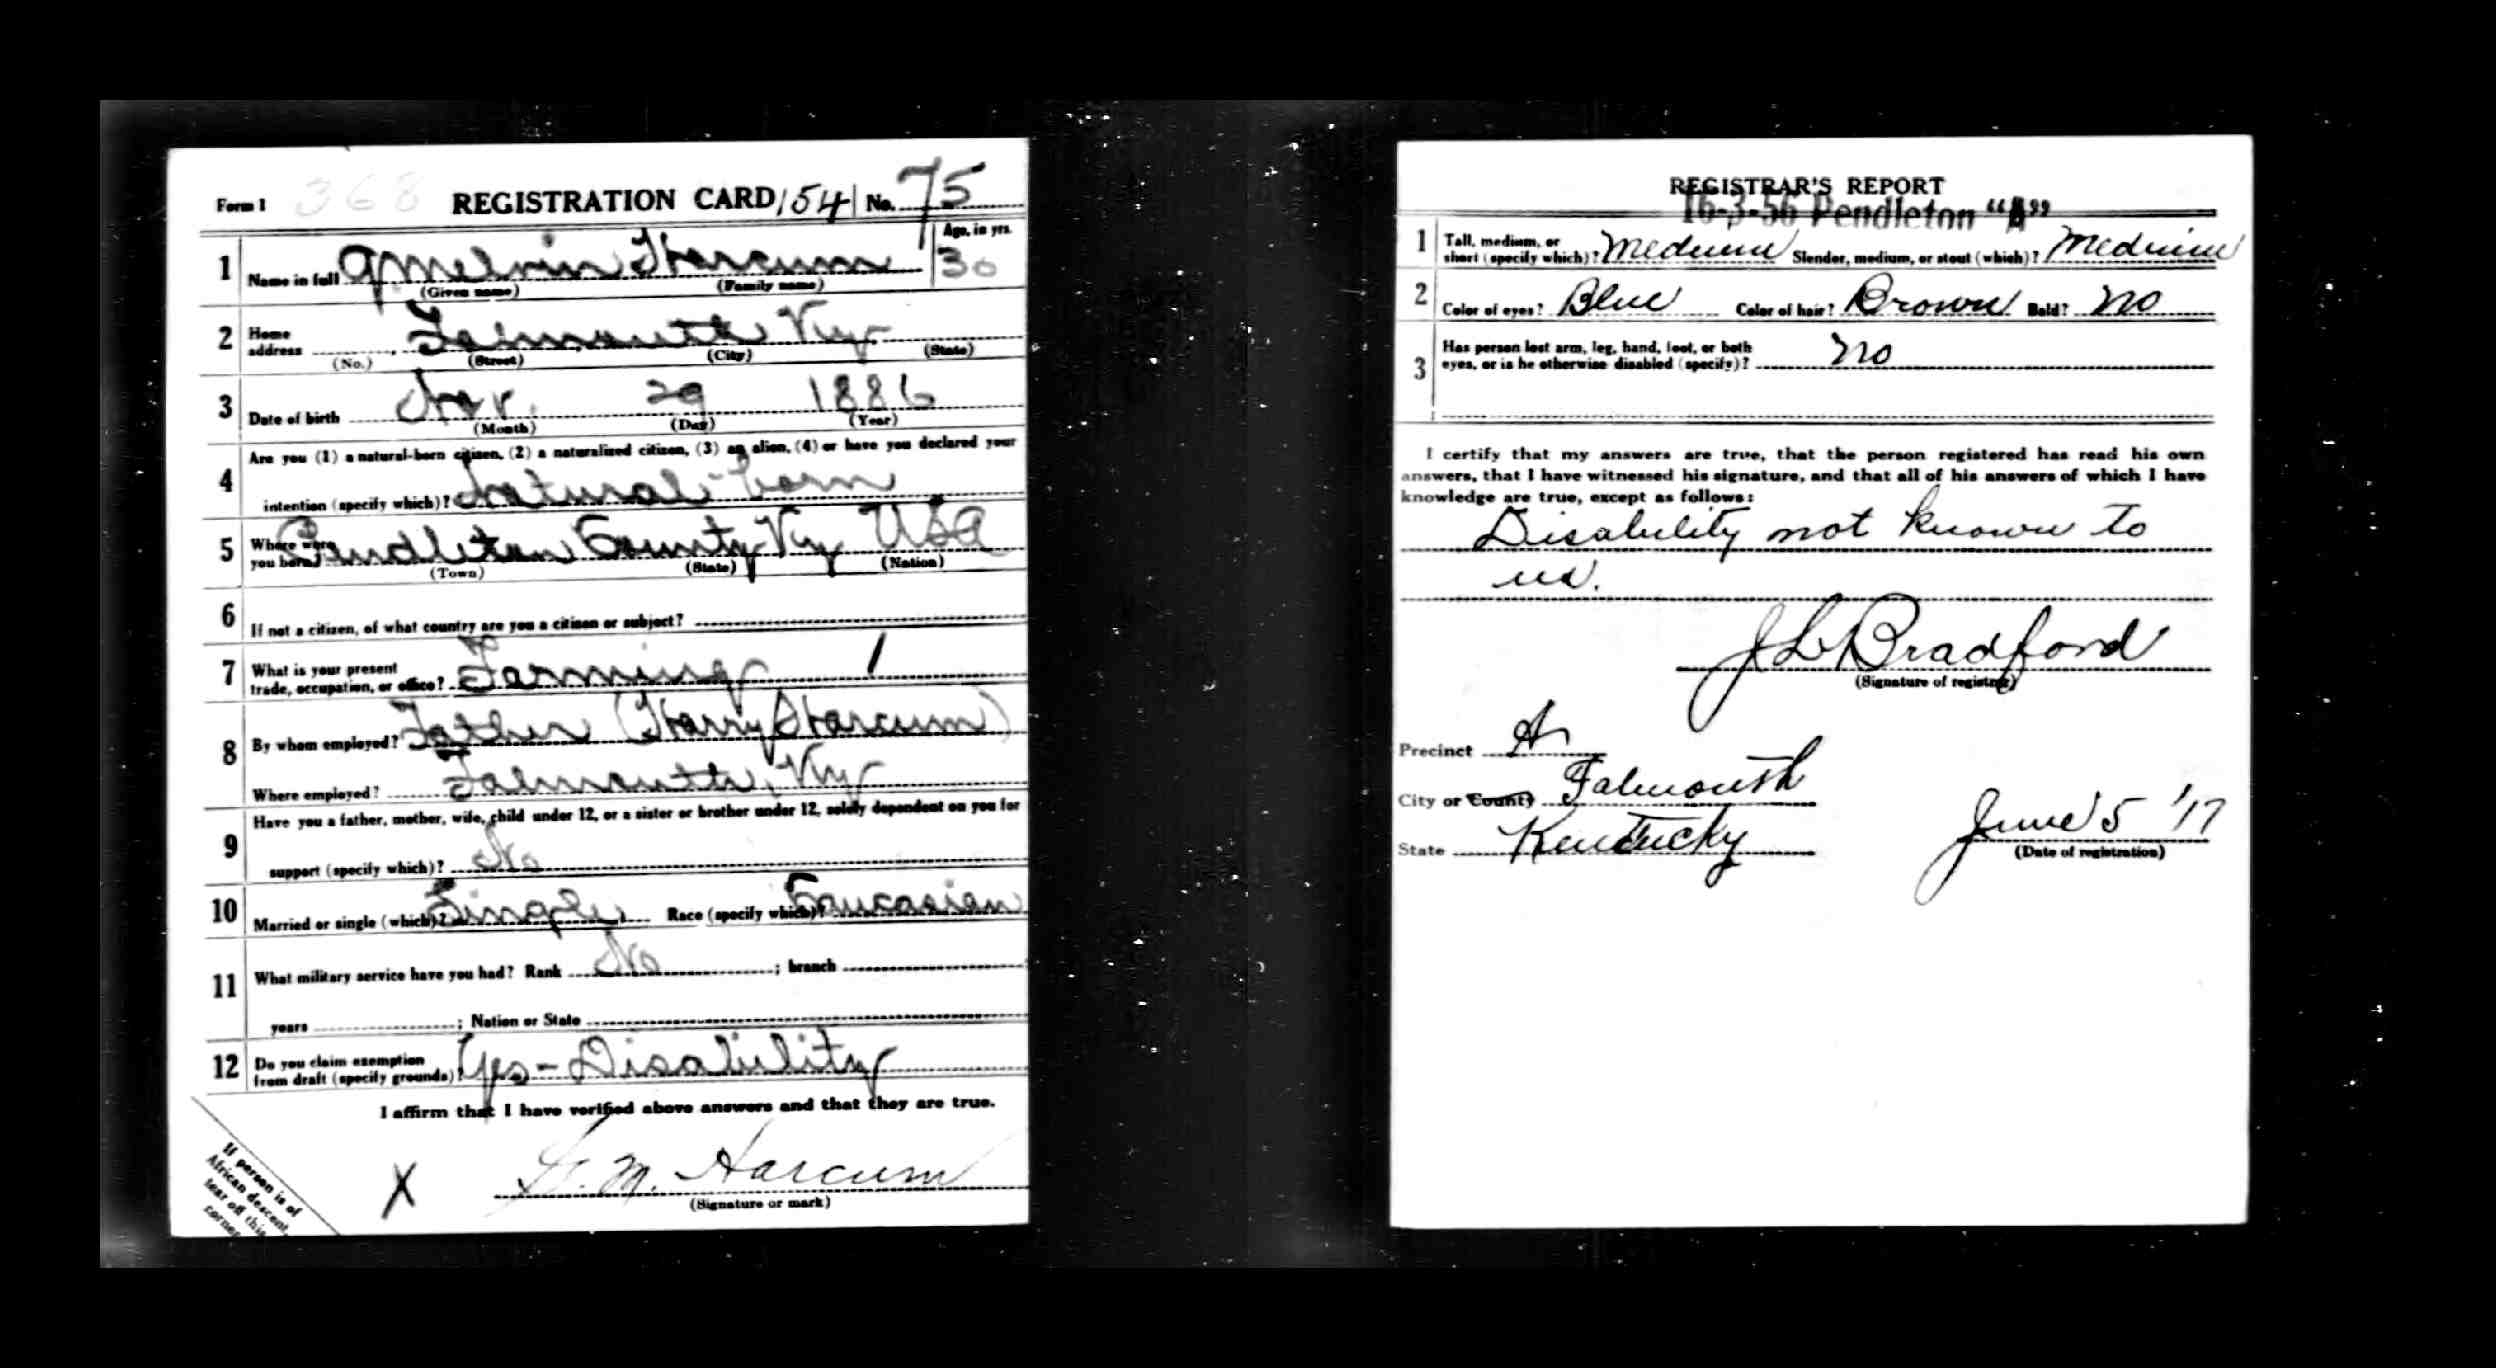 Form 1 368 REGISTRATION CARD 154 No. 75
1 Name in full G Melvin Harcum Age, in yrs. 30
(Given name) (Family name)
2 Home address Falmouth Ky
(No.) (Street) (City) (State)
3 Date of birth Nov. 29 1886
(Month) (Day) (Year)
4 Are you (1) a natural-born citizen, (2) a naturalized citizen, (3) an alien, (4) or have you declared your
intention (specify which)? Natural-born
5 Where were you born? Pendleton County Ky USA
(Town) (State) (Nation)
6 If not a citizen, of what country are you a citizen or subject?
7 What is your present trade, occupation, or office? Farming 1
8 By whom employed? Father (Harry Harcum)
Where employed? Falmouth, Ky
9 Have you a father, mother, wife, child under 12, or a sister or brother under 12, solely dependent on you for
support (specify which)? No
10 Married or single (which)? Single Race (specify which)? Caucasian
11 What military service have you had? Rank No ; branch
years ; Nation or State
12 Do you claim exemption from draft (specify grounds)? Yes - Disability
I affirm that I have verified above answers and that they are true.
X G. M. Harcum
(Signature or mark)
If person is of
African descent,
tear off this
corner
REGISTRAR'S REPORT
16-3-56 Pendleton "A"
1 Tall, medium, or short (specify which)? Medium Slender, medium, or stout (which)? Medium
2 Color of eyes? Blue Color of hair? Brown Bald? No
3 Has person lost arm, leg, hand, foot, or both eyes, or is he otherwise disabled (specify)? No
I certify that my answers are true, that the person registered has read his own
answers, that I have witnessed his signature, and that all of his answers of which I have
knowledge are true, except as follows:
Disability not known to
us.
J L Bradford
(Signature of registrar)
Precinct A
City or County Falmouth
State Kentucky June 5 '17
(Date of registration)